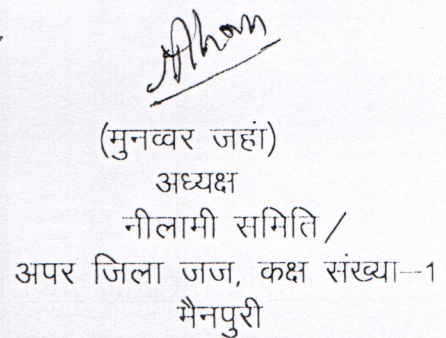 (मुनव्वर जहां)
अध्यक्ष
नीलामी समिति/
अपर जिला जज, कक्ष संख्या--1
मैनपुरी